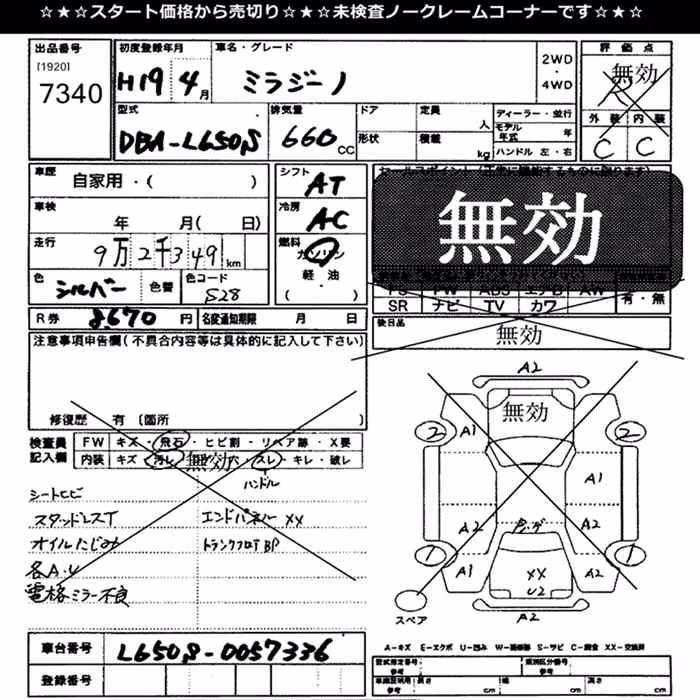 ☆★☆スタート価格から売切り☆★☆未検査ノークレームコーナーです☆★☆
出品番号
[1920]
7340
初度登録年月
H19 4月
車名・グレード
ミラジーノ
2WD
・
4WD
評価点
無効
R
外装 内装
C C
型式
DBA-L650S
排気量
660cc
ドア
形状
定員
人
積載
kg
ディーラー・並行
モデル年式 年
ハンドル 左・右
車歴
自家用・( )
車検
年 月( 日)
走行
9万2千349km
色
シルバー
色替
色コード
S28
シフト
AT
冷房
AC
燃料
ガソリン
軽・油
( )
セールスポイント
無効
PS PW ABS エアB AW
SR ナビ TV カワ
有・無
R券 8,670円
名変通知期限 月 日
後日品
無効
注意事項申告欄(不具合内容等は具体的に記入して下さい)
修復歴 有(箇所 )
検査員
記入欄
FW キズ・飛石・ヒビ割・リペア跡・X要
内装 キズ 汚レ 無効 スレ・キレ・破レ
ハンドル
シートヒビ
スタッドレスT
エンドパネル XX
オイルにじみ
トランクフロア BP
各A.U
電格ミラー不良
A2
無効
2 A1 2
A1
A2 A2
1 1
A1 XX A2
U2
スペア
A2
車台番号
L650S-0057336
登録番号
A-キズ E-エクボ U-凹み W-補修跡 S-サビ C-腐食 XX-交換済
型式指定番号
参考
類別区分番号
参考
車検証明用
参考
長さ cm
幅 cm
高さ cm